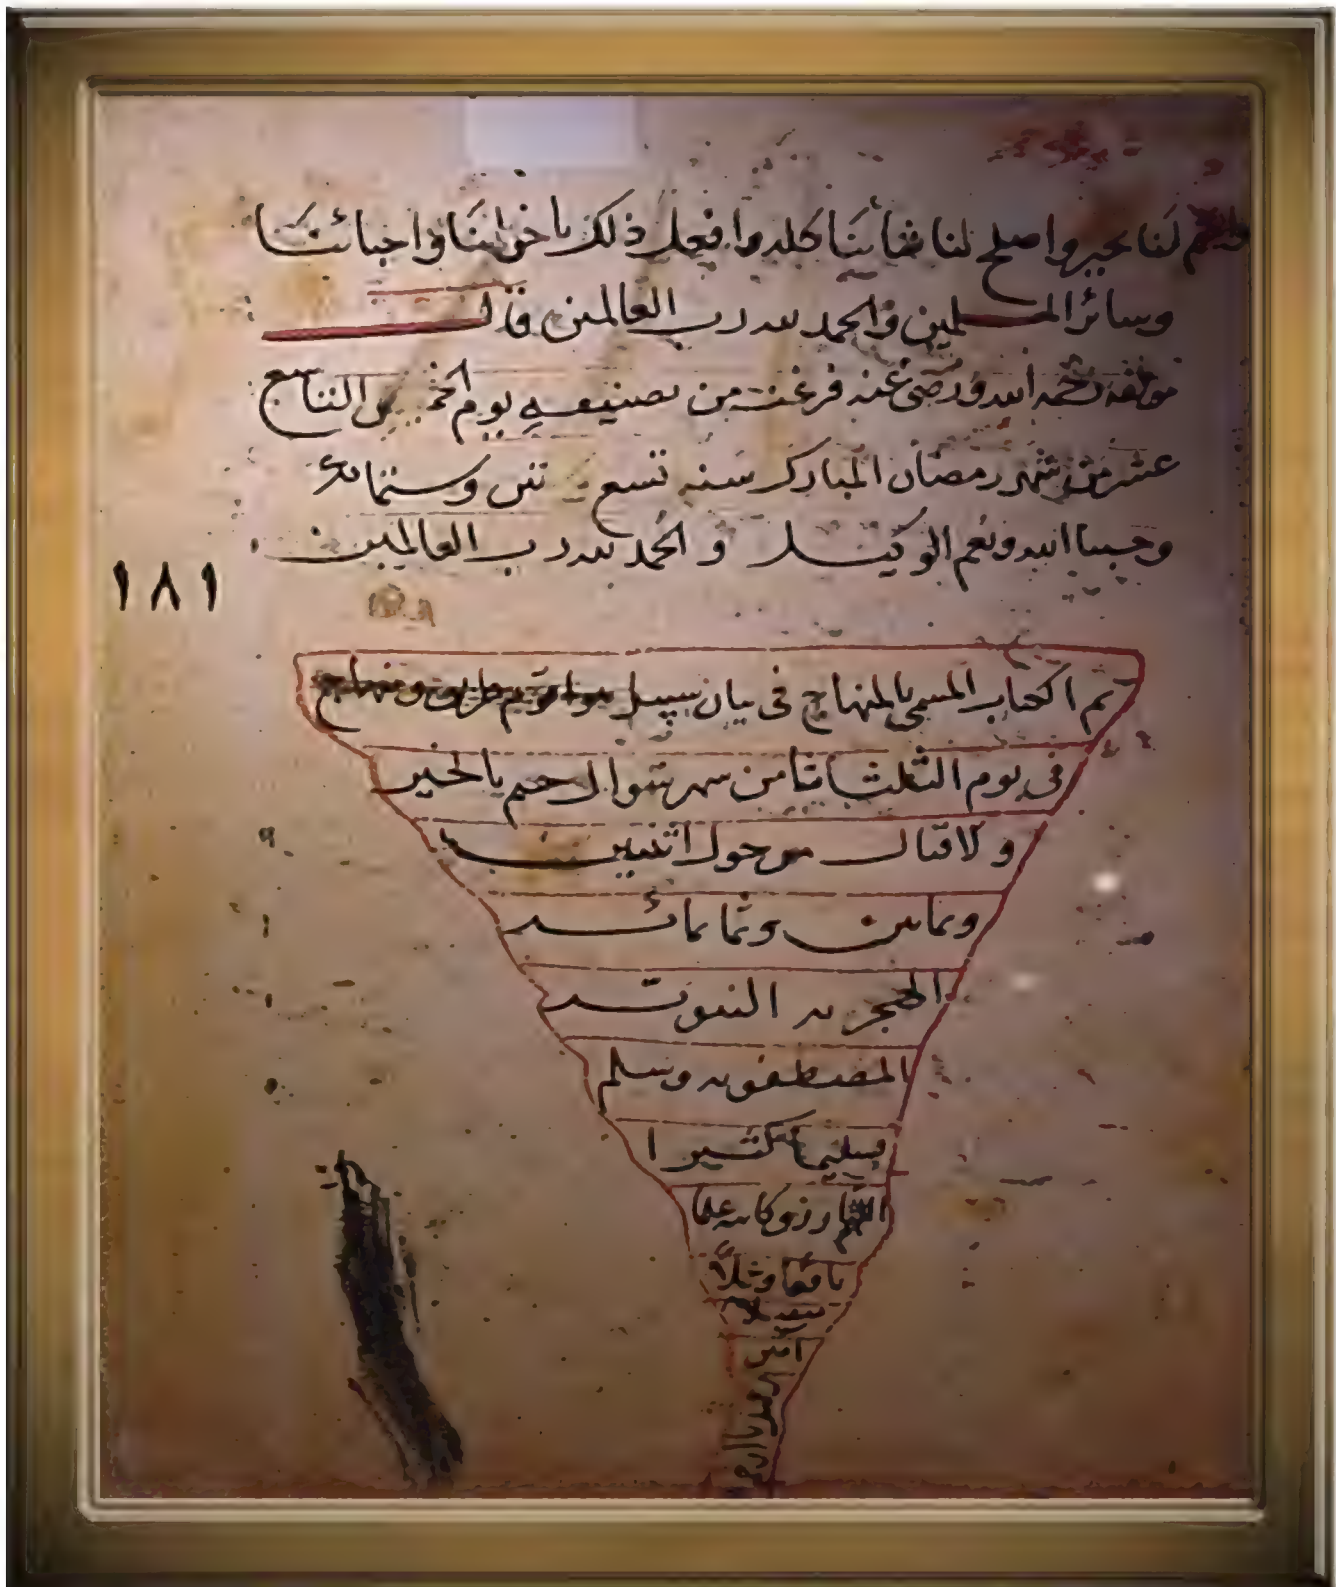 واختم لنا بخير واصلح لنا شأننا كله وافعل ذلك باخواننا واحبائنا
وسائر المسلمين والحمد لله رب العالمين قال
مؤلفه رحمه الله ورضي عنه فرغت من تصنيفه يوم الخميس التاسع
عشر من شهر رمضان المبارك سنة تسع وستمائة
وحسبنا الله ونعم الوكيل والحمد لله رب العالمين
١٨١
تم الكتاب المسمى بالمنهاج في بيان سبيل ومنهاج
في يوم الثلثا ثامن شهر شوال ختم بالخير
ولاقبال من حول اثنين
وثمانين وثمانمائة
الهجرية النبوية
المصطفوية وسلم
تسليما كثيرا
اللهم ارزق كاتبه علما
نافعا
امين